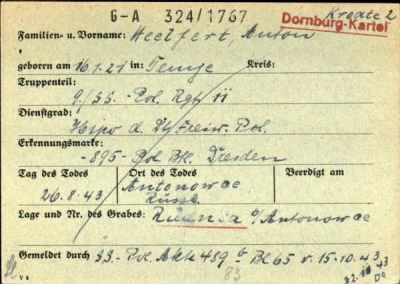 G-A 324/1767 Kroate 2
Dornburg-Kartei
Familien- u. Vorname: Heckfert, Anton
geboren am 16.1.21 in: Temje Kreis:
Truppenteil:
9./SS.-Pol. Rgt. 11
Dienstgrad:
d. Freiw. Pol.
Erkennungsmarke:
-895- Pol. Btl. Dresden
Tag des Todes Ort des Todes Beerdigt am
26.8.43 Antonowac
Lage und Nr. des Grabes: Antonowac
Gemeldet durch SS-Pol. Akte 489 b Bl 65 v. 15.10.43
83